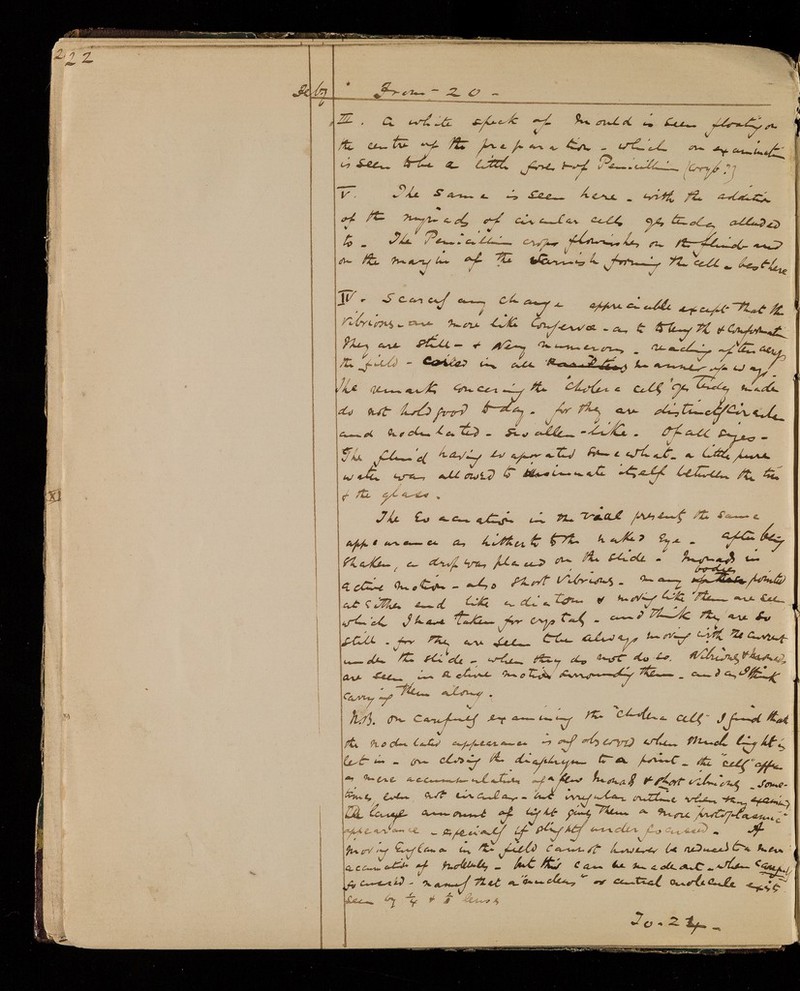 222
From - 20 -
III. A white speck of mould is seen floating on
the centre of the preparation - which on examination
is seen to be a little forest of Penicillium
V. The same is seen here - with the addition
of the myriads of circular cells yesterday alluded
to - The Penicillium crops flourishes on the fluid and
on the margin of the varnish forming the cell - best here
IV. Scarcely any change appreciable except that the
Vibriones - are more like Conferva - as to length & Conformation
They are still - & very numerous - reaching often across
the field - coiled in all manner of ways
The remarks concerning the "Cholera cells" yesterday made
do not hold good to day - for they are distinctly circular
and nodulated - Of all sizes -
The fluid having evaporated somewhat - a little pure
water was allowed to insinuate itself between the
& the glass.
The Evacuation in the vial presents the same
appearance as hitherto to the naked eye - After being
shaken, a drop was placed on the slide - Monads in
active motion - also short Vibriones - many bodies pointed
at either end like a diatom & moving like them are seen
which I have taken for crystals - and think they are so
still - for they are seen always moving with the current
under the slide - when they do not do so, Vibriones & Monads
are seen in active motion surrounding them - and as I think
carrying them along.
N.B. On carefully examining the "Cholera cell" I find that
the nodulated appearance is only observed when much light is
let in - on closing the diaphragm to a point - the "cells" appear
as mere accumulation of a few Monads & short vibriones - some-
times even not circular - but irregular outline when
The large amount of light giving them a more protoplasmic
appearance - especially if slightly under focused - A
moving Euglena in the field cannot however be reduced to a mere
accumulation of molecules - but this can be made out - when carefully
focused - namely that a "nucleus" or central molecule exists
seen by 1/4 & 1/8 lenses
To - 24 -